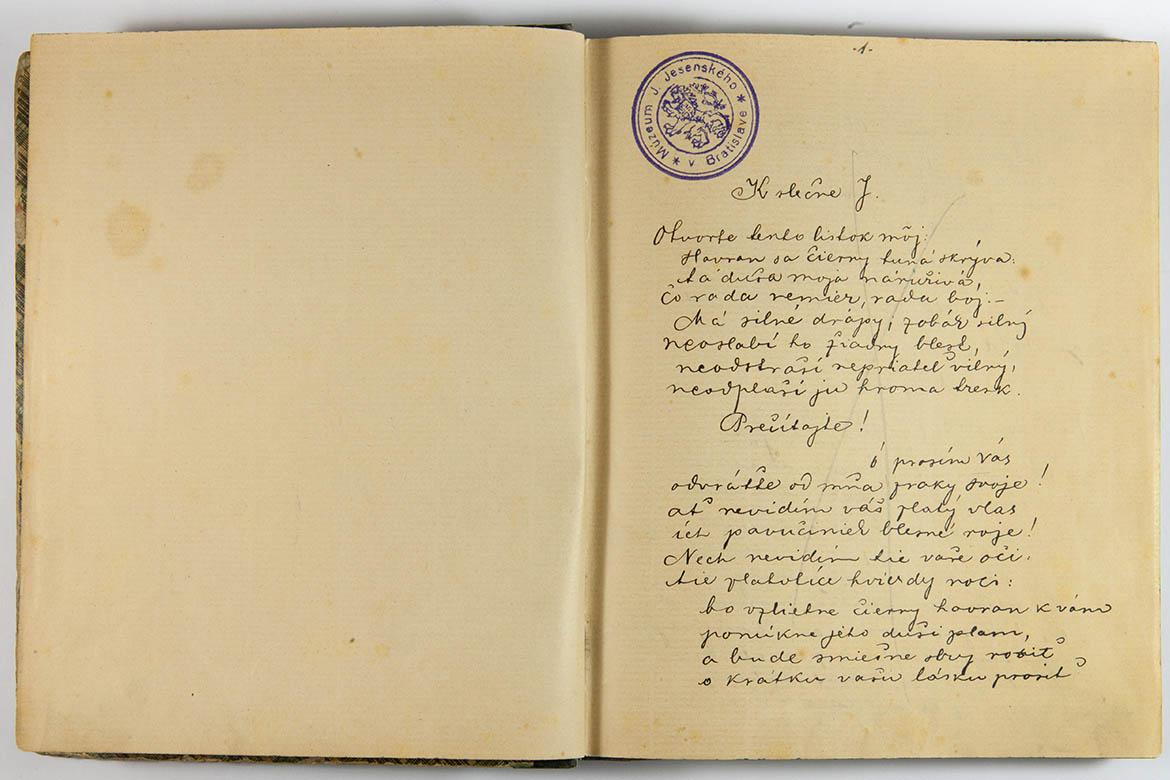 -1-
Múzeum J. Jesenského * v Bratislave *
K slečne J.
Otvorte tento lístok môj:
Havran sa čierny tuná skrýva:
tá duša moja náruživá,
čo rada nemier, rada boj. –
Má silné drápy, zobák silný
neoslabí ho žiadny blesk,
neodstraší nepriateľ vilný,
neodplaší ju hroma tresk.
Prečítajte!
ó prosím vás
odvráťte od mňa zraky svoje!
ať nevidím váš zlatý vlas
ich pavučiniek blesné roje!
Nech nevidím tie vaše oči.
tie zlatolíce hviezdy noci:
bo vzlietne čierny havran k vám
ponúkne jého duši plam,
a bude smiešne sby robiť
o krátku vašu lásku prosiť